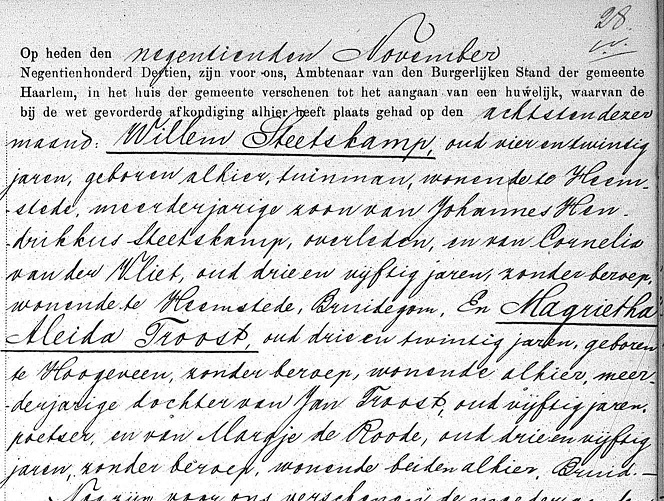 28.
Op heden den negentienden November
Negentienhonderd Dertien, zijn voor ons, Ambtenaar van den Burgerlijken Stand der gemeente
Haarlem, in het huis der gemeente verschenen tot het aangaan van een huwelijk, waarvan de
bij de wet gevorderde afkondiging alhier heeft plaats gehad op den achtsten dezer
maand: Willem Steetskamp, oud vier en twintig
jaren, geboren alhier, tuinman, wonende te Heem-
-stede, meerderjarige zoon van Johannes Hen-
drikkus Steetskamp, overleden, en van Cornelia
van der Vliet, oud drie en vijftig jaren, zonder beroep,
wonende te Heemstede, Bruidegom, En Magrietha
Aleida Troost, oud drie en twintig jaren, geboren
te Hoogeveen, zonder beroep, wonende alhier, meer-
-derjarige dochter van Jan Troost, oud vijftig jaren,
poetser, en van Margje de Roode, oud drie en vijftig
jaren, zonder beroep, wonende beiden alhier, Bruid.-